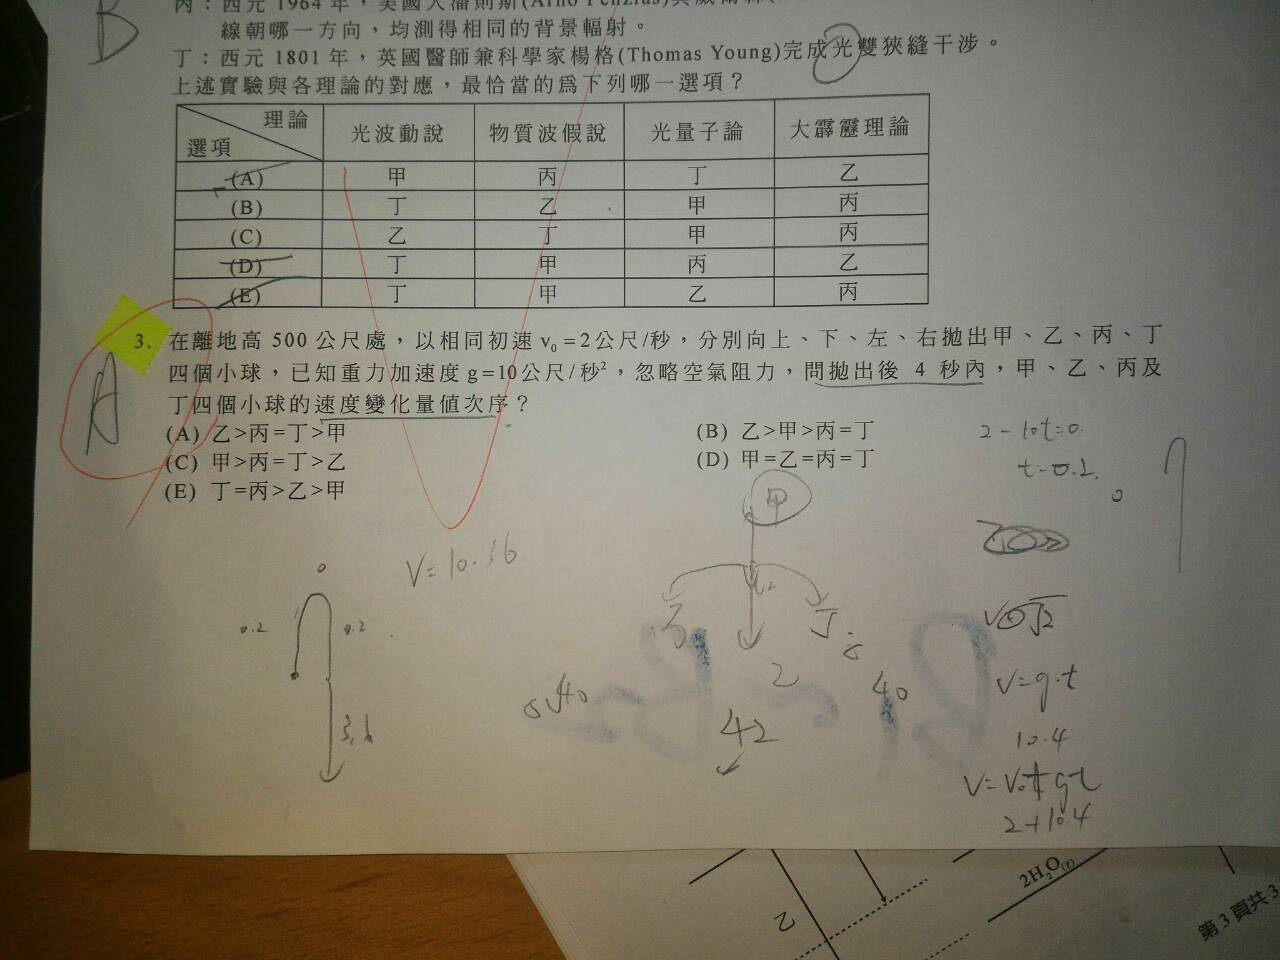 丙：西元 1964 年，美國人潘則斯(Arno Penzias)與威爾
線朝哪一方向，均測得相同的背景輻射。
B
丁：西元 1801 年，英國醫師兼科學家楊格(Thomas Young)完成光雙狹縫干涉。
上述實驗與各理論的對應，最恰當的為下列哪一選項？
理論 選項 光波動說 物質波假說 光量子論 大霹靂理論
(A) 甲 丙 丁 乙
(B) 丁 乙 甲 丙
(C) 乙 丁 甲 丙
(D) 丁 甲 丙 乙
(E) 丁 甲 乙 丙
3. 在離地高 500 公尺處，以相同初速 v₀ = 2 公尺/秒，分別向上、下、左、右拋出甲、乙、丙、丁
四個小球，已知重力加速度 g=10公尺/秒²，忽略空氣阻力，問拋出後 4 秒內，甲、乙、丙及
丁四個小球的速度變化量值次序？
A
(A) 乙>丙=丁>甲 (B) 乙>甲>丙=丁
(C) 甲>丙=丁>乙 (D) 甲=乙=丙=丁
(E) 丁=丙>乙>甲
2-10t=0.
t=0.2.
甲
V=10.36
0
0.2 0.2
3.6
丁
2
40
40
42
V=g.t
10.4
V=V₀+gt
2+10.4
乙
2H₂O(ℓ)
第 3 頁共 3